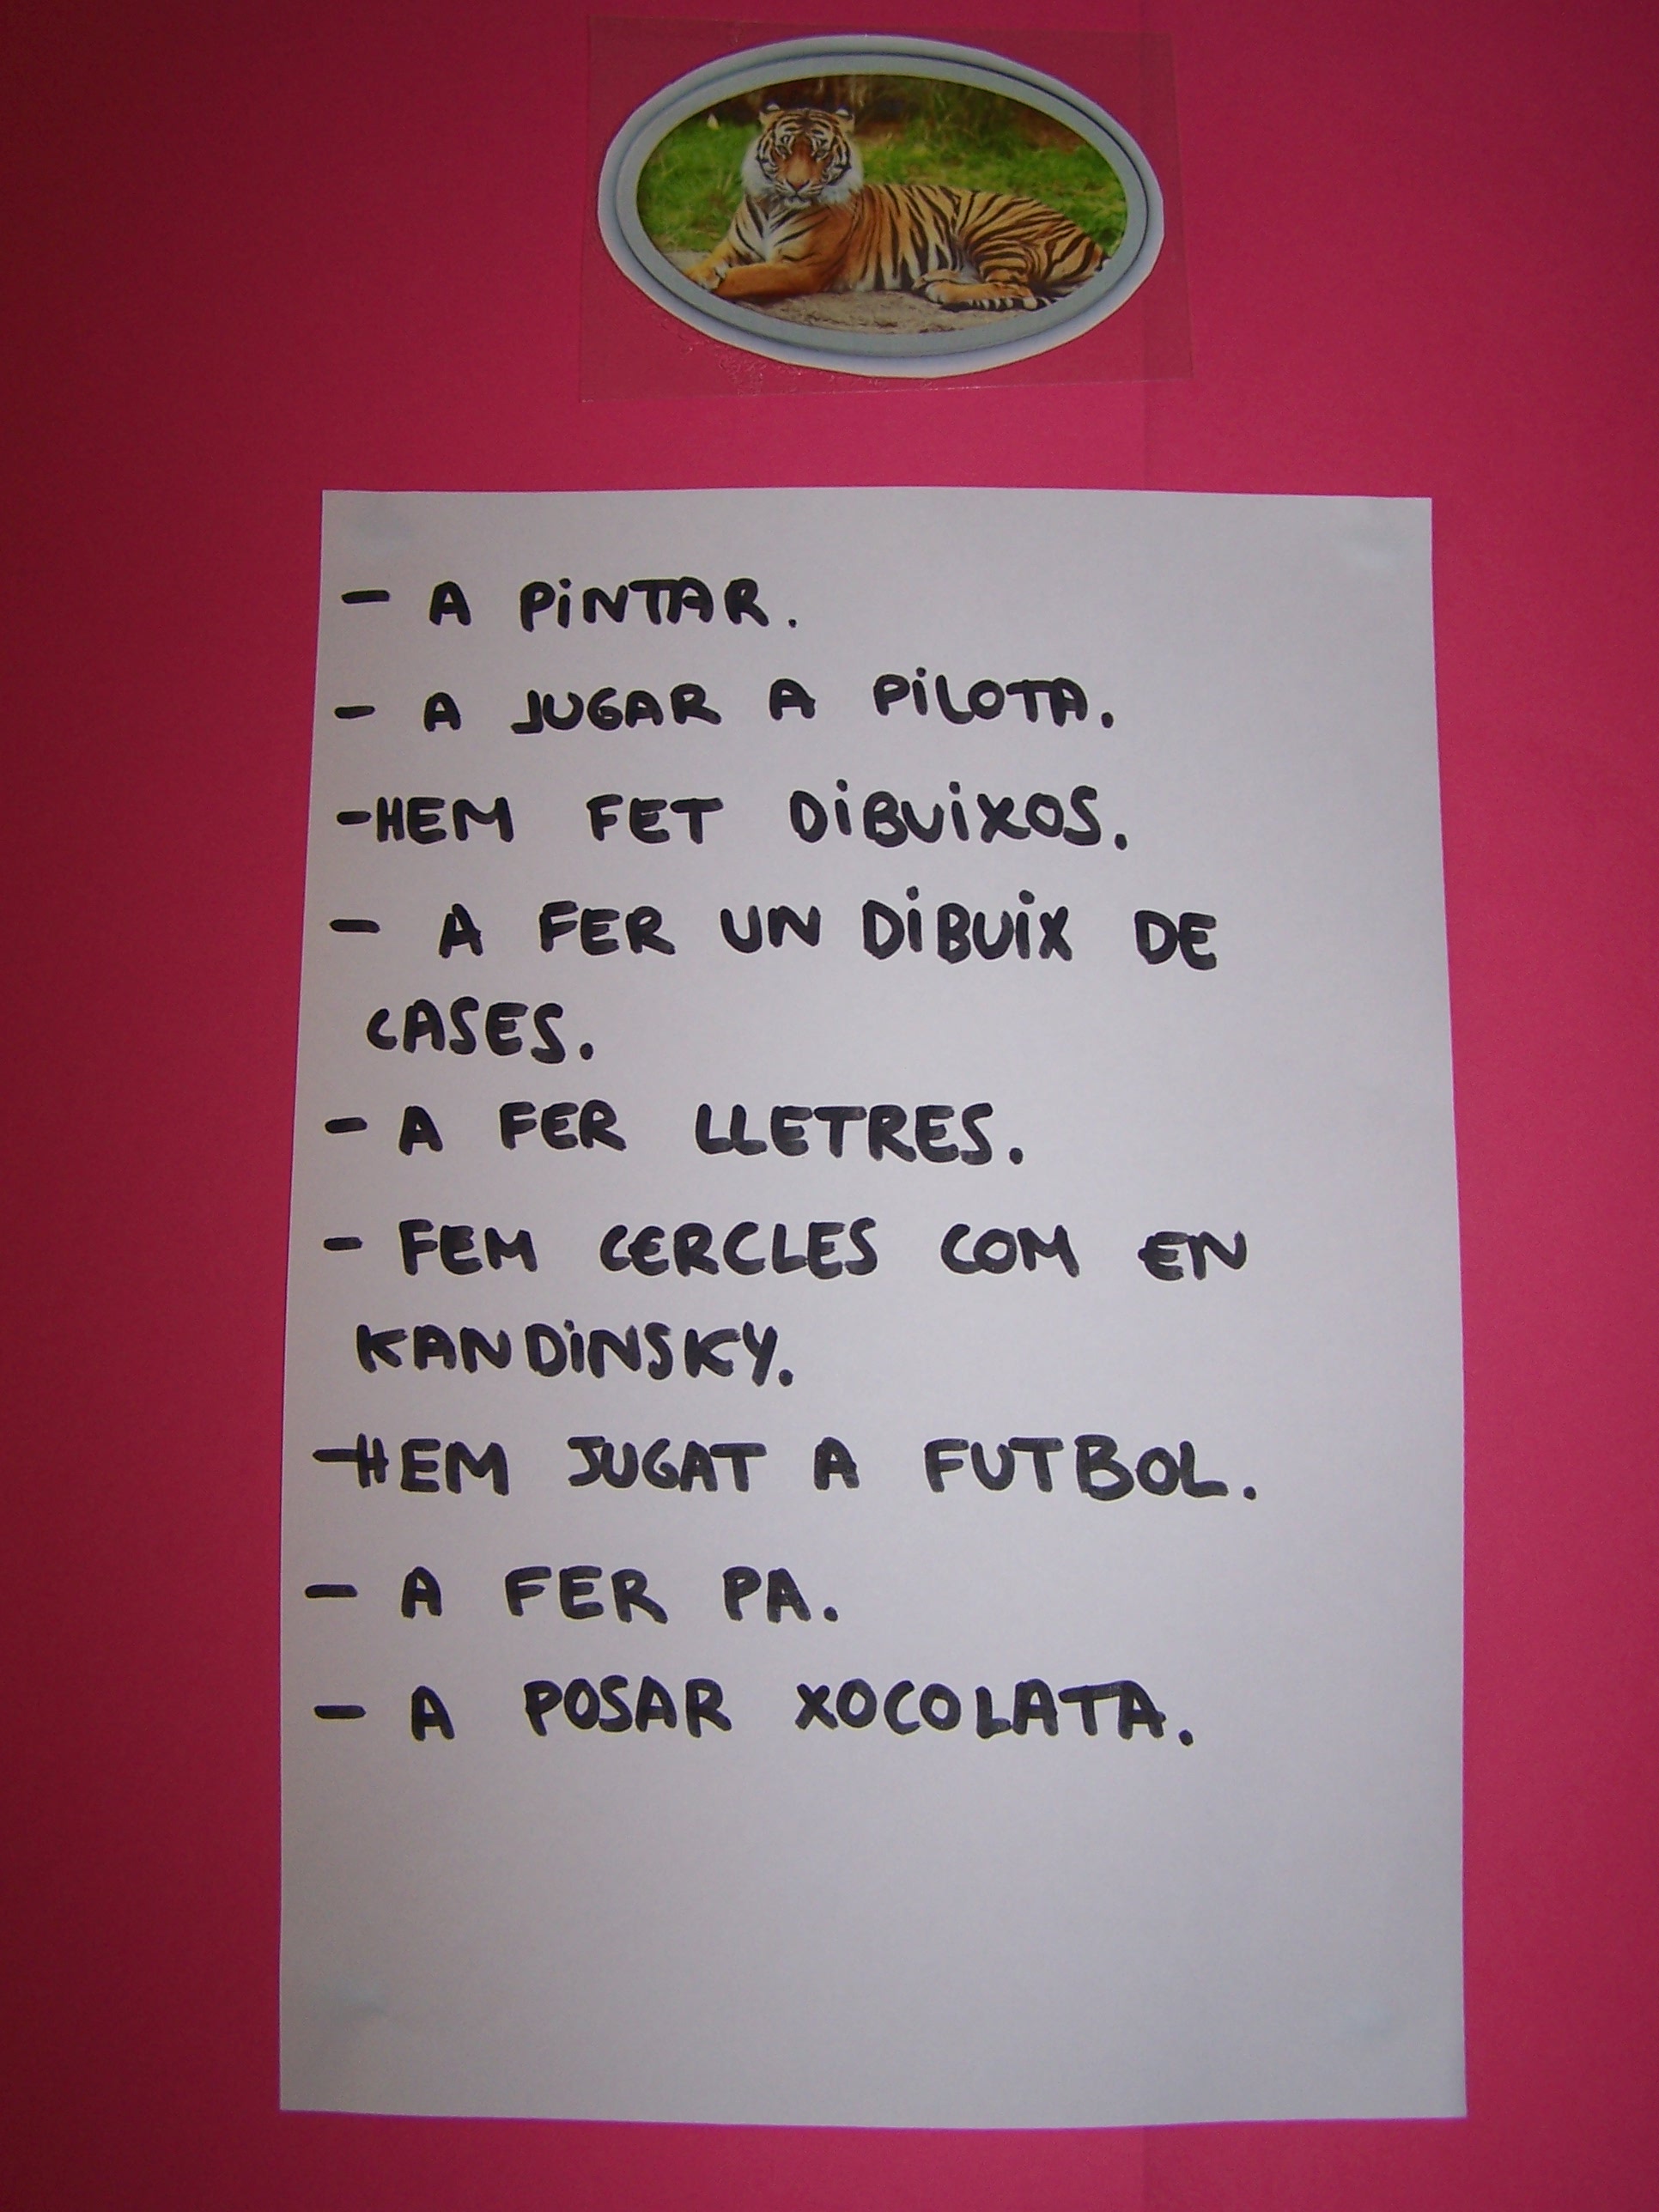 - A PiNTAR.
- A JUGAR A PiLOTA.
-HEM FET DiBUiXOS.
- A FER UN DiBUiX DE
CASES.
- A FER LLETRES.
- FEM CERCLES COM EN
KANDiNSKY.
-HEM JUGAT A FUTBOL.
- A FER PA.
- A POSAR XOCOLATA.